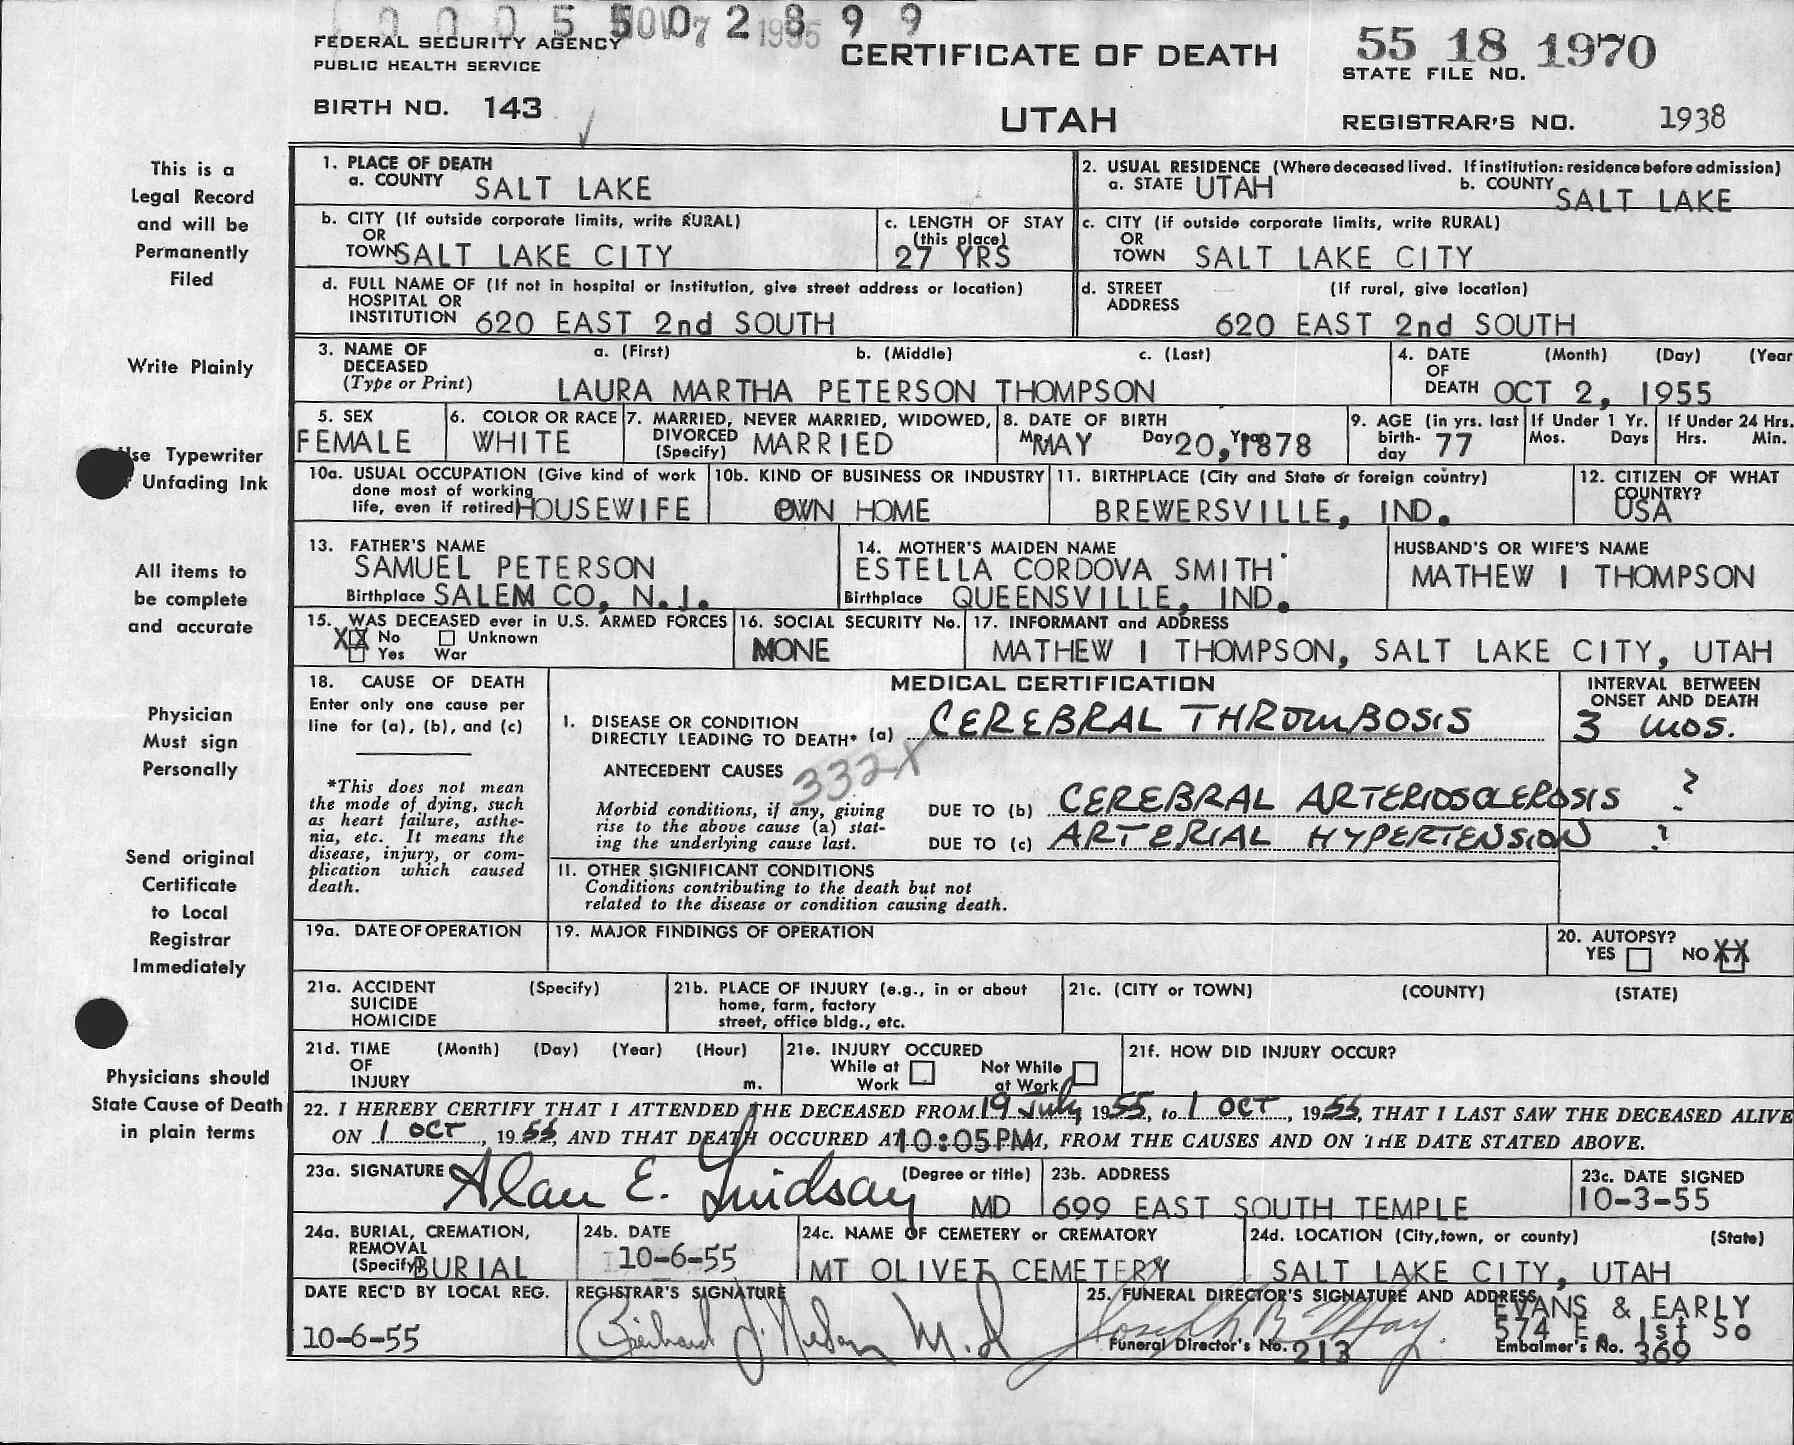 0 0 0 5 5 0 2 8 9 9
NOV 7 1955
FEDERAL SECURITY AGENCY
PUBLIC HEALTH SERVICE
CERTIFICATE OF DEATH
55 18 1970
STATE FILE NO.
BIRTH NO. 143
UTAH
REGISTRAR'S NO. 1938
This is a
Legal Record
and will be
Permanently
Filed
Write Plainly
Use Typewriter
Unfading Ink
All items to
be complete
and accurate
Physician
Must sign
Personally
Send original
Certificate
to Local
Registrar
Immediately
Physicians should
State Cause of Death
in plain terms
1. PLACE OF DEATH
a. COUNTY SALT LAKE
2. USUAL RESIDENCE (Where deceased lived. If institution: residence before admission)
a. STATE UTAH b. COUNTY SALT LAKE
b. CITY (If outside corporate limits, write RURAL)
OR
TOWN SALT LAKE CITY
c. LENGTH OF STAY
(this place)
27 YRS
c. CITY (if outside corporate limits, write RURAL)
OR
TOWN SALT LAKE CITY
d. FULL NAME OF (If not in hospital or institution, give street address or location)
HOSPITAL OR
INSTITUTION 620 EAST 2nd SOUTH
d. STREET (If rural, give location)
ADDRESS
620 EAST 2nd SOUTH
3. NAME OF a. (First) b. (Middle) c. (Last)
DECEASED
(Type or Print) LAURA MARTHA PETERSON THOMPSON
4. DATE (Month) (Day) (Year
OF
DEATH OCT 2, 1955
5. SEX
FEMALE
6. COLOR OR RACE
WHITE
7. MARRIED, NEVER MARRIED, WIDOWED,
DIVORCED
(Specify) MARRIED
8. DATE OF BIRTH
MAY Day 20, 1878
9. AGE (in yrs. last
birth-
day 77
If Under 1 Yr.
Mos. Days
If Under 24 Hrs.
Hrs. Min.
10a. USUAL OCCUPATION (Give kind of work
done most of working
life, even if retired) HOUSEWIFE
10b. KIND OF BUSINESS OR INDUSTRY
OWN HOME
11. BIRTHPLACE (City and State or foreign country)
BREWERSVILLE, IND.
12. CITIZEN OF WHAT
COUNTRY?
USA
13. FATHER'S NAME
SAMUEL PETERSON
Birthplace SALEM CO, N.J.
14. MOTHER'S MAIDEN NAME
ESTELLA CORDOVA SMITH
Birthplace QUEENSVILLE, IND.
HUSBAND'S OR WIFE'S NAME
MATHEW I THOMPSON
15. WAS DECEASED ever in U.S. ARMED FORCES
XX No Unknown
Yes War
16. SOCIAL SECURITY No.
NONE
17. INFORMANT and ADDRESS
MATHEW I THOMPSON, SALT LAKE CITY, UTAH
18. CAUSE OF DEATH
Enter only one cause per
line for (a), (b), and (c)
*This does not mean
the mode of dying, such
as heart failure, asthe-
nia, etc. It means the
disease, injury, or com-
plication which caused
death.
MEDICAL CERTIFICATION
INTERVAL BETWEEN
ONSET AND DEATH
I. DISEASE OR CONDITION
DIRECTLY LEADING TO DEATH* (a) CEREBRAL THROMBOSIS 3 mos.
ANTECEDENT CAUSES 332X
Morbid conditions, if any, giving
rise to the above cause (a) stat-
ing the underlying cause last.
DUE TO (b) CEREBRAL ARTERIOSCLEROSIS ?
DUE TO (c) ARTERIAL HYPERTENSION ?
11. OTHER SIGNIFICANT CONDITIONS
Conditions contributing to the death but not
related to the disease or condition causing death.
19a. DATE OF OPERATION
19. MAJOR FINDINGS OF OPERATION
20. AUTOPSY?
YES NO XX
21a. ACCIDENT (Specify)
SUICIDE
HOMICIDE
21b. PLACE OF INJURY (e.g., in or about
home, farm, factory
street, office bldg., etc.
21c. (CITY or TOWN) (COUNTY) (STATE)
21d. TIME (Month) (Day) (Year) (Hour)
OF
INJURY m.
21e. INJURY OCCURED
While at Not While
Work at Work
21f. HOW DID INJURY OCCUR?
22. I HEREBY CERTIFY THAT I ATTENDED THE DECEASED FROM 19 July 1955, to 1 OCT, 1955, THAT I LAST SAW THE DECEASED ALIVE
ON 1 OCT, 1955, AND THAT DEATH OCCURED AT 10:05PM, FROM THE CAUSES AND ON THE DATE STATED ABOVE.
23a. SIGNATURE (Degree or title)
Alan E. Lindsay MD
23b. ADDRESS
699 EAST SOUTH TEMPLE
23c. DATE SIGNED
10-3-55
24a. BURIAL, CREMATION,
REMOVAL
(Specify) BURIAL
24b. DATE
10-6-55
24c. NAME OF CEMETERY or CREMATORY
MT OLIVET CEMETERY
24d. LOCATION (City, town, or county) (State)
SALT LAKE CITY, UTAH
DATE REC'D BY LOCAL REG.
10-6-55
REGISTRAR'S SIGNATURE
M.D
25. FUNERAL DIRECTOR'S SIGNATURE AND ADDRESS
EVANS & EARLY
574 E. 1st So
Joseph B.
Funeral Director's No. 213
Embalmer's No. 369